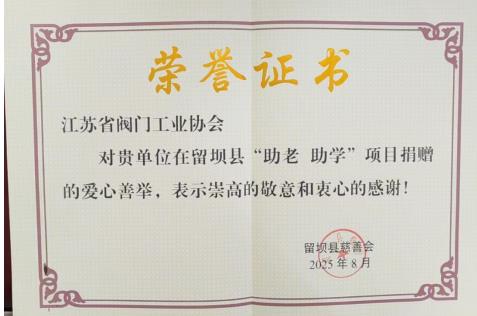 荣誉证书
江苏省阀门工业协会
对贵单位在留坝县“助老 助学”项目捐赠
的爱心善举，表示崇高的敬意和衷心的感谢！
留坝县慈善会
2025年8月